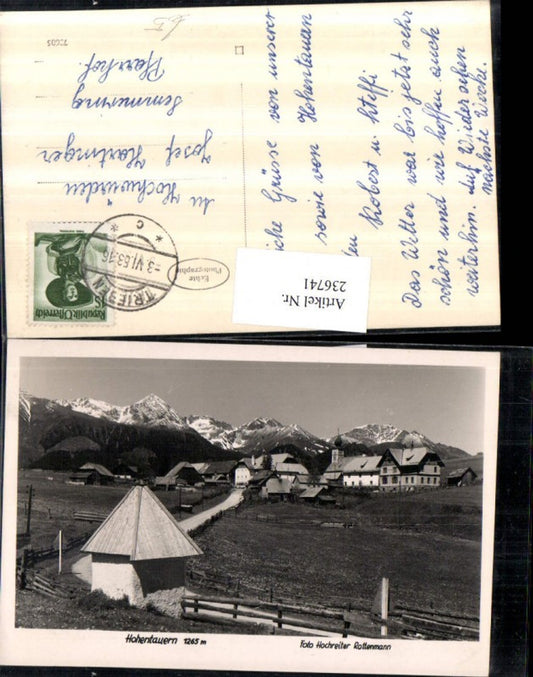 Pfarrhof.
Semmering
Josef Hartinger
An Hochwürden
22605
iche Grüsse von unserer
sowie von Hohentauern
en Robert u. Steffi
Das Wetter war bis jetzt sehr
schön und wir hoffen auch
weiterhin. Auf Wiedersehen
nächste Woche.
TRIEBEN
-3.VI.63-16
* C *
Echte
Photographie
Republik Österreich
Artikel Nr.
236741
Hohentauern 1265 m
Foto Hochreiter Rottenmann